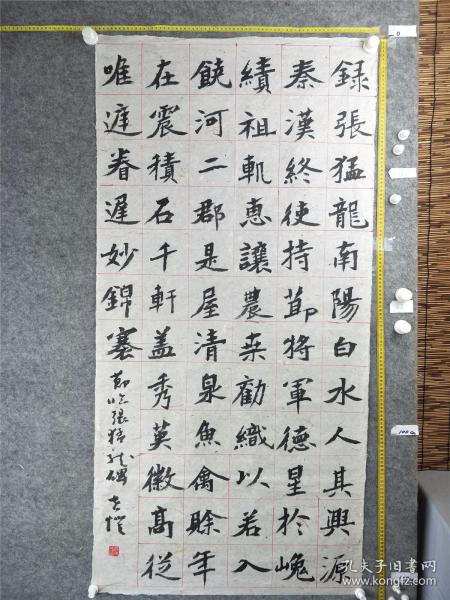 録張猛龍南陽白水人其興源
秦漢終使持節将軍德星於巉
績祖軌惠讓農桒勸織以若入
饒河二郡是屋清泉魚禽賖年
在震積石千軒盖秀英徽高従
唯遊眷遅妙錦寋
節临張猛龍碑
孔夫子旧书网
kongfz.com